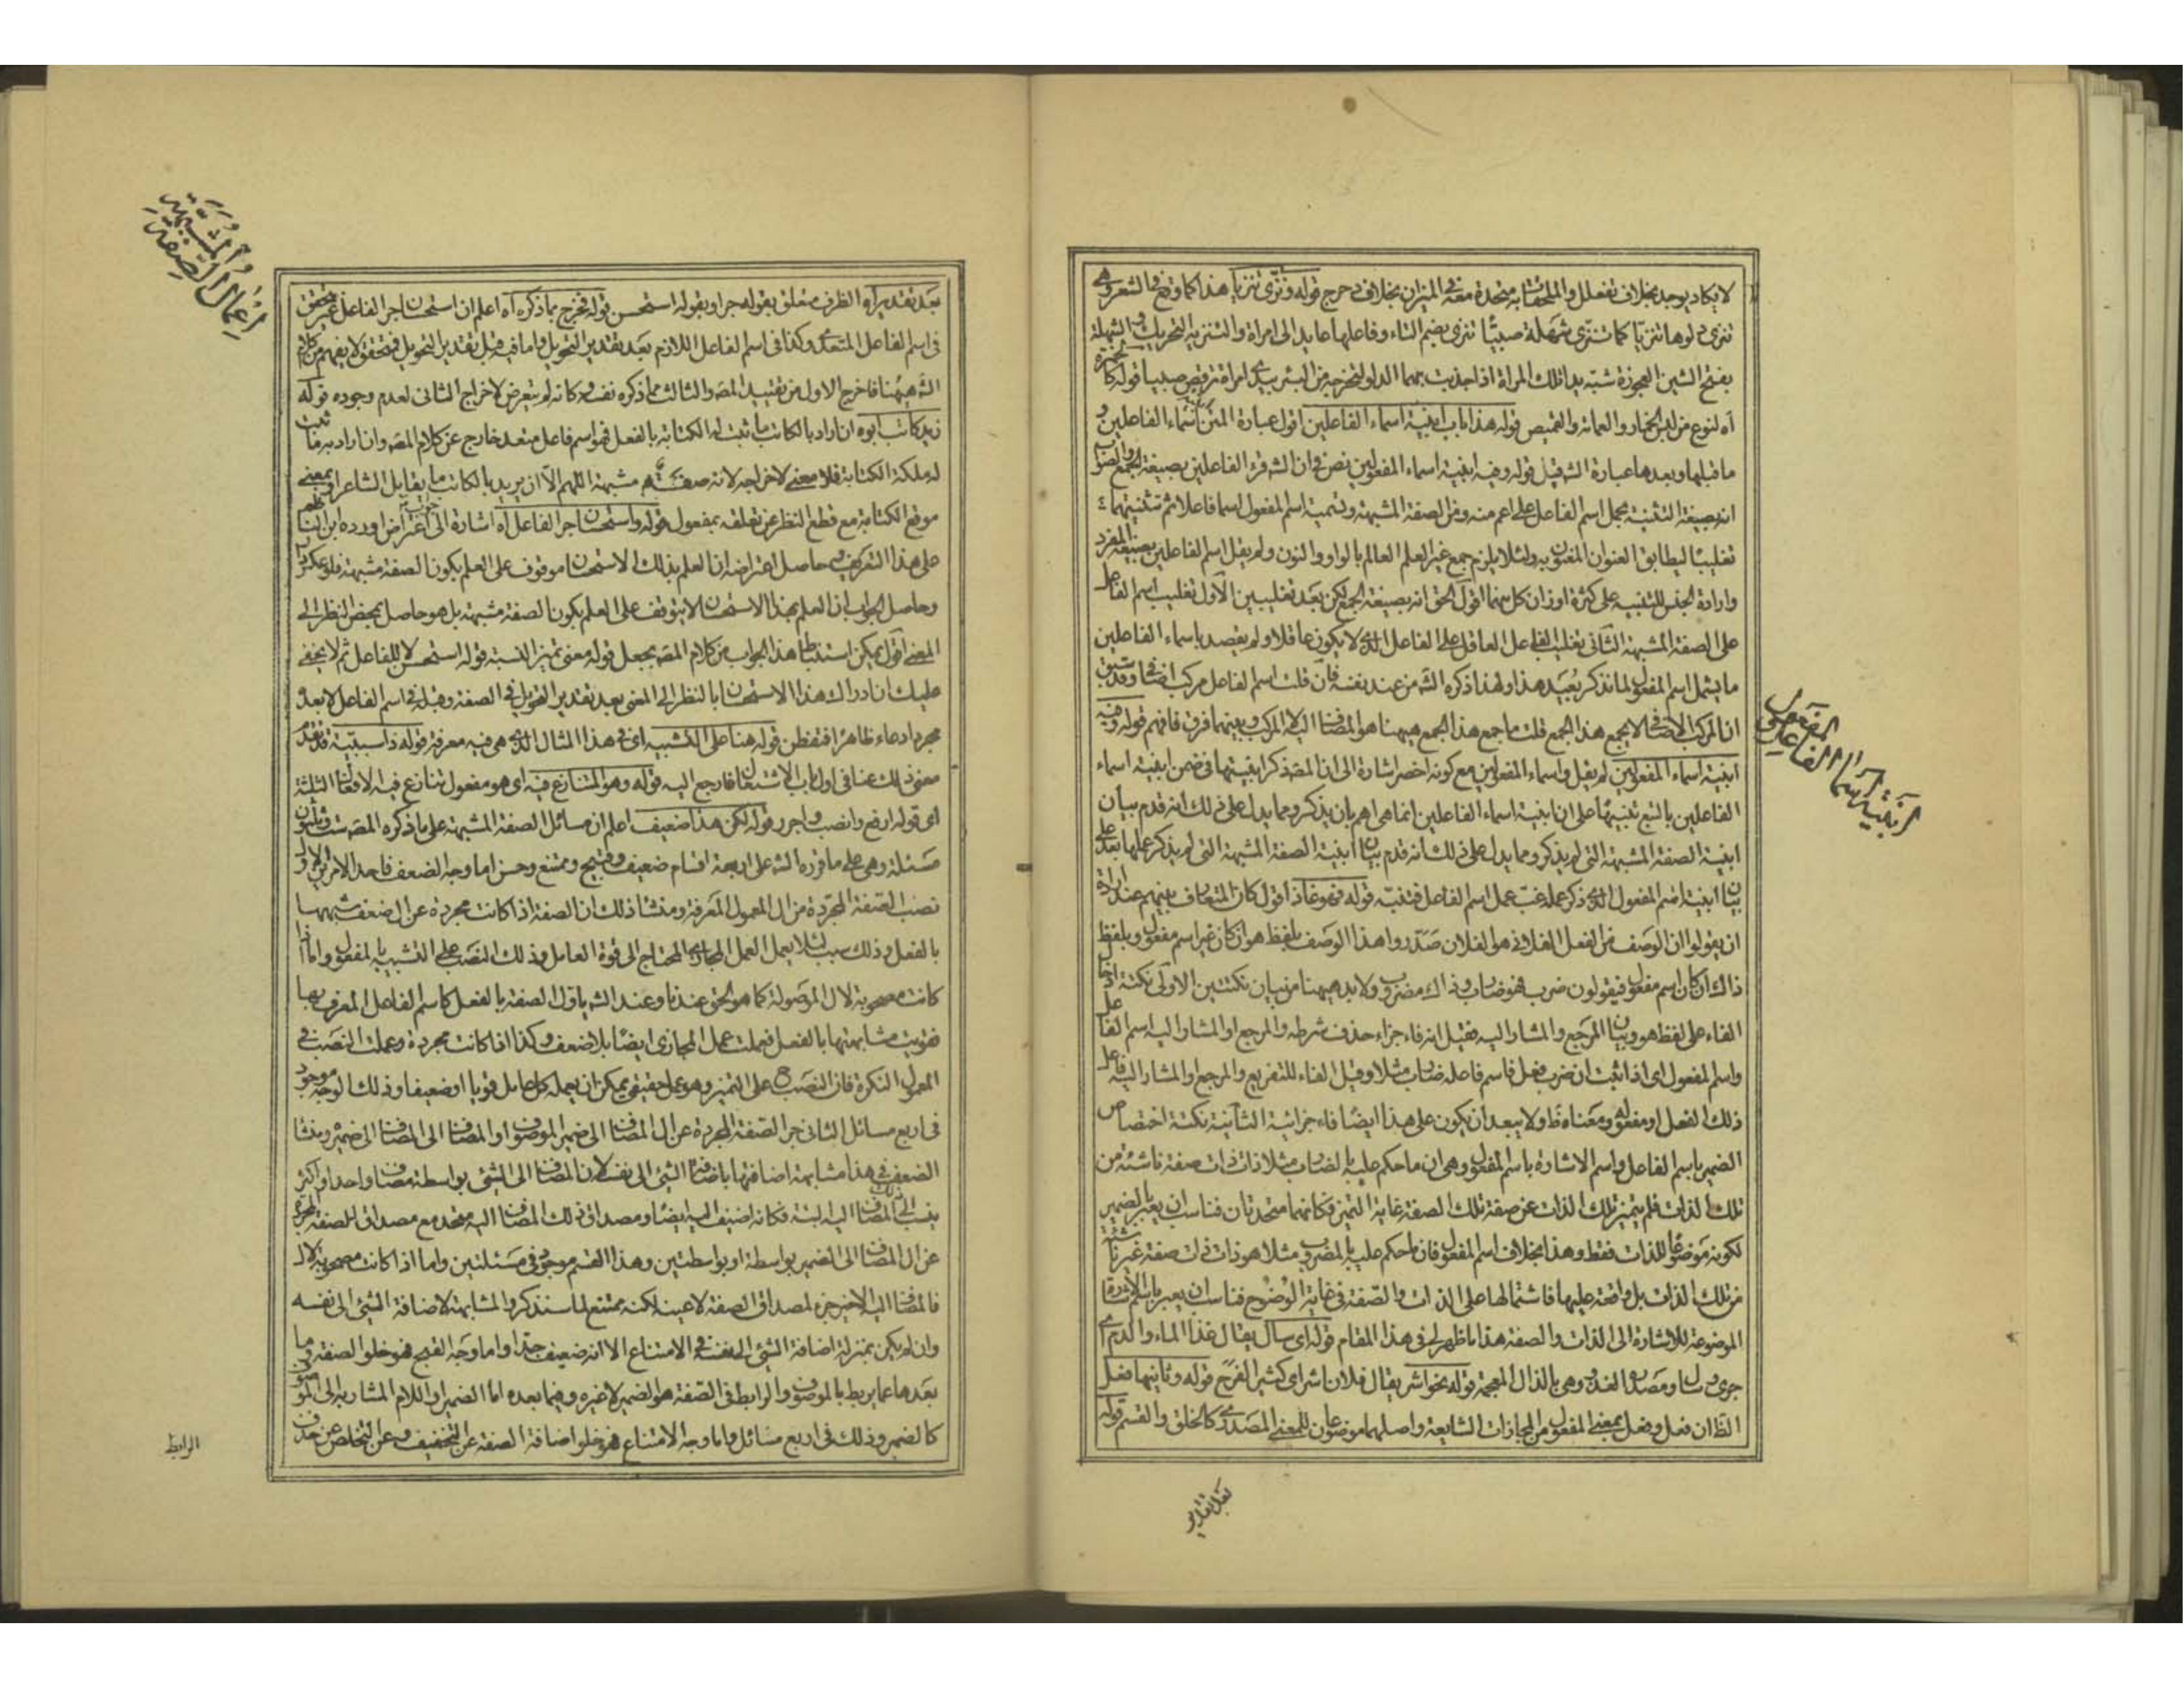 لا يكاد يوجد بخلاف تفعلل والملحقا به متحدة معه في الميزان بخلاف دحرج قوله وتنزى تنزيا هذا كما وقع في الشعر وهى
تنزى دلوها تنزيا كما تنزى شهلة صبيا تنزى بضم التاء وفاعلها عايد الى امراة والتنزية التحريك والشهلة
بفتح الشين العجوزة شبه يدا تلك المراة اذا جذبت بهما الدلو لتخرجه من البئر بيدى امراة ترقص صبيا قوله كالخمرة
اه لنوع من لبس الخمار والعمامة والقميص قوله هذا باب ابنية اسماء الفاعلين اقول عبارة المتن اسماء الفاعلين و
ما قبلها وبعدها عبارة الشه قيل قوله وفيه ابنية اسماء المفعولين نص في ان الشه قرء الفاعلين بصيغة الجمع والصواب
انه بصيغة التثنية بجعل اسم الفاعل على اعم منه ومن الصفة المشبهة وتسمية اسم المفعول اسما فاعلا ثم تثنيتهما
تغليبا ليطابق العنوان المعنون به ولئلا يلزم جمع غير العلم العالم بالواو والنون ولم يقل اسم الفاعلين بصيغة المفرد
وارادة الجنس للتنبيه على كثرة اوزان كل منهما اقول الحق انه بصيغة الجمع لكن بعد تغليبين الاول تغليب اسم الفاعل
على الصفة المشبهة الثانى تغليب الفاعل العاقل على الفاعل الذى لا يكون عاقلا ولم يقصد باسماء الفاعلين
ما يشمل اسم المفعول لما نذكر بعيد هذا ولهذا ذكره الشه من عند نفسه فان قلت اسم الفاعل مركب اضافى وقد سبق
ان المركب الاضافى لا يجمع هذا الجمع قلت ما جمع هذا الجمع هيهنا هو المضاف اليه لا المركب وبينهما فرق فافهم قوله وفيه
ابنية اسماء المفعولين لم يقل واسماء المفعولين مع كونه اخصر اشارة الى ان المصه ذكر ابنيتها في ضمن ابنية اسماء
الفاعلين بالتبع تنبيها على ان ابنية اسماء الفاعلين انما هى اهم بان يذكر ومما يدل على ذلك انه قدم بيان
ابنية الصفة المشبهة التى لم يذكر ومما يدل على ذلك انه قدم بيان ابنية الصفة المشبهة التى لم يذكر عملها بعد على
بيان ابنية اسم المفعول الذى ذكر عمله غب عمل اسم الفاعل فتنبه قوله فهو غاذ اقول كان المتعارف بينهم عند ارادة
ان يقولوا ان الوصف من الفعل الفلانى هو الفلان صدروا هذا الوصف بلفظ هو ان كان غير اسم مفعول وبلفظ
ذاك ان كان اسم مفعول فيقولون ضرب فهو ضارب وذاك مضروب ولا بد هيهنا من بيان نكتتين الاولى نكتة ادخال
الفاء على لفظ هو وبيان المرجع والمشار اليه فقيل انه فاء جزاء حذف شرطه والمرجع او المشار اليه اسم الفاعل
واسم المفعول اى اذا ثبت ان ضرب فعل فاسم فاعله ضارب مثلا وقيل الفاء للتفريع والمرجع او المشار اليه فاعل
ذلك الفعل او مفعوله ومعناه ظ ولا يبعد ان يكون على هذا ايضا فاء جزائية الثانية نكتة اختصاص
الضمير باسم الفاعل واسم الاشارة باسم المفعول وهى ان ما حكم عليه بالضارب مثلا ذات ذات صفة ناشئة من
تلك الذات فلم يتميز تلك الذات عن صفة تلك الصفة غاية التميز فكانهما متحدتان فناسب ان يعبر بالضمير
لكونه موضوعا للذات فقط وهذا بخلاف اسم المفعول فان ما حكم عليه بالمضروب مثلا هو ذات ذات صفة غير ناشئة
من تلك الذات بل واقعة عليها فاشتمالها على الذات والصفة في غاية الوضوح فناسب ان يعبر باسم الاشارة
الموضوعة للاشارة الى الذات والصفة هذا ما ظهر لى في هذا المقام قوله اى سال يقال غذا الماء والدم اى
جرى وسال ومصدره الغذو وهى بالذال المعجمة قوله نحو اشر يقال فلان اشر اى كثير الفرح قوله وثانيهما فعل
الظ ان فعل وفعل بمعنى المفعول من المجازات الشايعة واصلهما موضوعان للمعنى المصدرى كالخلق والقسم قوله
ابنية اسماء الفاعلين
بعد تقدير
بعد تقدير اه الظرف متعلق بقوله جر او بقوله استحسن قوله فخرج بما ذكره اه اعلم ان استحسان جر الفاعل غير متحقق
في اسم الفاعل المتعدى وكذا في اسم الفاعل اللازم بعد تقدير التحويل واما فيه قبل تقدير التحويل فمتحقق لا يفهم من كلام
الشه هيهنا فاخرج الاول من تقييد المصه والثالث مما ذكره نفسه وكانه لم يتعرض لاخراج الثانى لعدم وجوده قوله
زيد كاتب ابوه ان اراد بالكاتب ما ثبت له الكتابة بالفعل فهو اسم فاعل متعد خارج عن كلام المصه وان اراد به ما ثبت
له ملكة الكتابة فلا معنى لاخراجه لانه صفة مشبهة اللهم الا ان يريد بالكاتب ما يقابل الشاعر او بمعنى
موقع الكتابة مع قطع النظر عن تعلقه بمفعول قوله واستحسان جر الفاعل اه اشارة الى جواب اعتراض اورده ابن الناظم
على هذا التعريف وحاصل اعتراضه ان العلم بذلك الاستحسان موقوف على العلم بكون الصفة مشبهة فلو عكس دار
وحاصل الجواب ان العلم بهذا الاستحسان لا يتوقف على العلم بكون الصفة مشبهة بل هو حاصل بمحض النظر الى
المعنى اقول يمكن استنباط هذا الجواب من كلام المصه بجعل قوله معنى تميز النسبة قوله استحسن لا للفاعل ثم لا يخفى
عليك ان ادراك هذا الاستحسان بالنظر الى المعنى بعيد تقدير التحويل في الصفة وقبله في اسم الفاعل لا بعده
مجرد ادعاء ظاهرا فتفطن قوله هنا على التشبيه اى في هذا المثال الذى هى فيه معرفة قوله ذا سببية قد تقدم
معنى ذلك عنا في اول باب الاشتغال فارجع اليه قوله وهو المتنازع فيه اى هو مفعول تنازع فيه الافعال الثلثة
اى قوله ارفع وانصب واجرر قوله لكن هذا ضعيف اعلم ان مسائل الصفة المشبهة على ما ذكره المصه ست وثلثون
مسئلة وهى على ما قرره الشه على اربعة اقسام ضعيف وقبيح وممتنع وحسن اما وجه الضعف فاحد الامرين الاول
نصب الصفة المجردة من ال المعمول المعرفة ومنشا ذلك ان الصفة اذا كانت مجردة عن ال ضعف شبهها
بالفعل وذلك سبب لئلا يعمل العمل المجازى المحتاج الى قوة العامل وذلك النصب على التشبيه بالمفعول واما اذا
كانت مصحوبة لال الموصولة كما هو الحق عندنا وعند الشه ياول الصفة بالفعل كاسم الفاعل المعرف بها
فقويت مشابهتها بالفعل فعملت عمل المجازى ايضا بلا ضعف وكذا اذا كانت مجردة وعملت النصب في
المعمول النكرة فان النصب ح على التميز وهو عمل حقيقى يمكن ان يعمله كل عامل قويا او ضعيفا وذلك الوجه موجود
في اربع مسائل الثانى جر الصفة المجردة عن ال المضاف الى ضمير الموصوف او المضاف الى المضاف الى ضميره ومنشا
الضعف في هذا مشابهة اضافتها باضافة الشئ الى نفسه لان المضاف الى الشئ بواسطة مضاف واحد او اكثر
ينسب الى المضاف اليه البتة فكانه اضيف اليه ايضا ومصداق ذلك المضاف اليه متحد مع مصداق الصفة المجردة
عن ال المضاف الى الضمير بواسطة او بواسطتين وهذا القسم موجود في مسئلتين واما اذا كانت مصحوبة لال
فالمضاف اليه الاخير جزء لمصداق الصفة لا عينه لكنه ممتنع لما سنذكر والمشابهة لاضافة الشئ الى نفسه
وان لم يكن بمنزلة اضافة الشئ الى نفسه في الامتناع الا انه ضعيف جدا واما وجه القبح فهو خلو الصفة وما
بعدها عما يربط بالموصوف والرابط في الصفة هو الضمير لا غيره وفيما بعده اما الضمير او اللام المشار به الى الموصوف
كالضمير وذلك في اربع مسائل واما وجه الامتناع فهو خلو اضافة الصفة عن التخفيف وعن التخلص عن حذف
اعمال الصفة المشبهة
الرابط